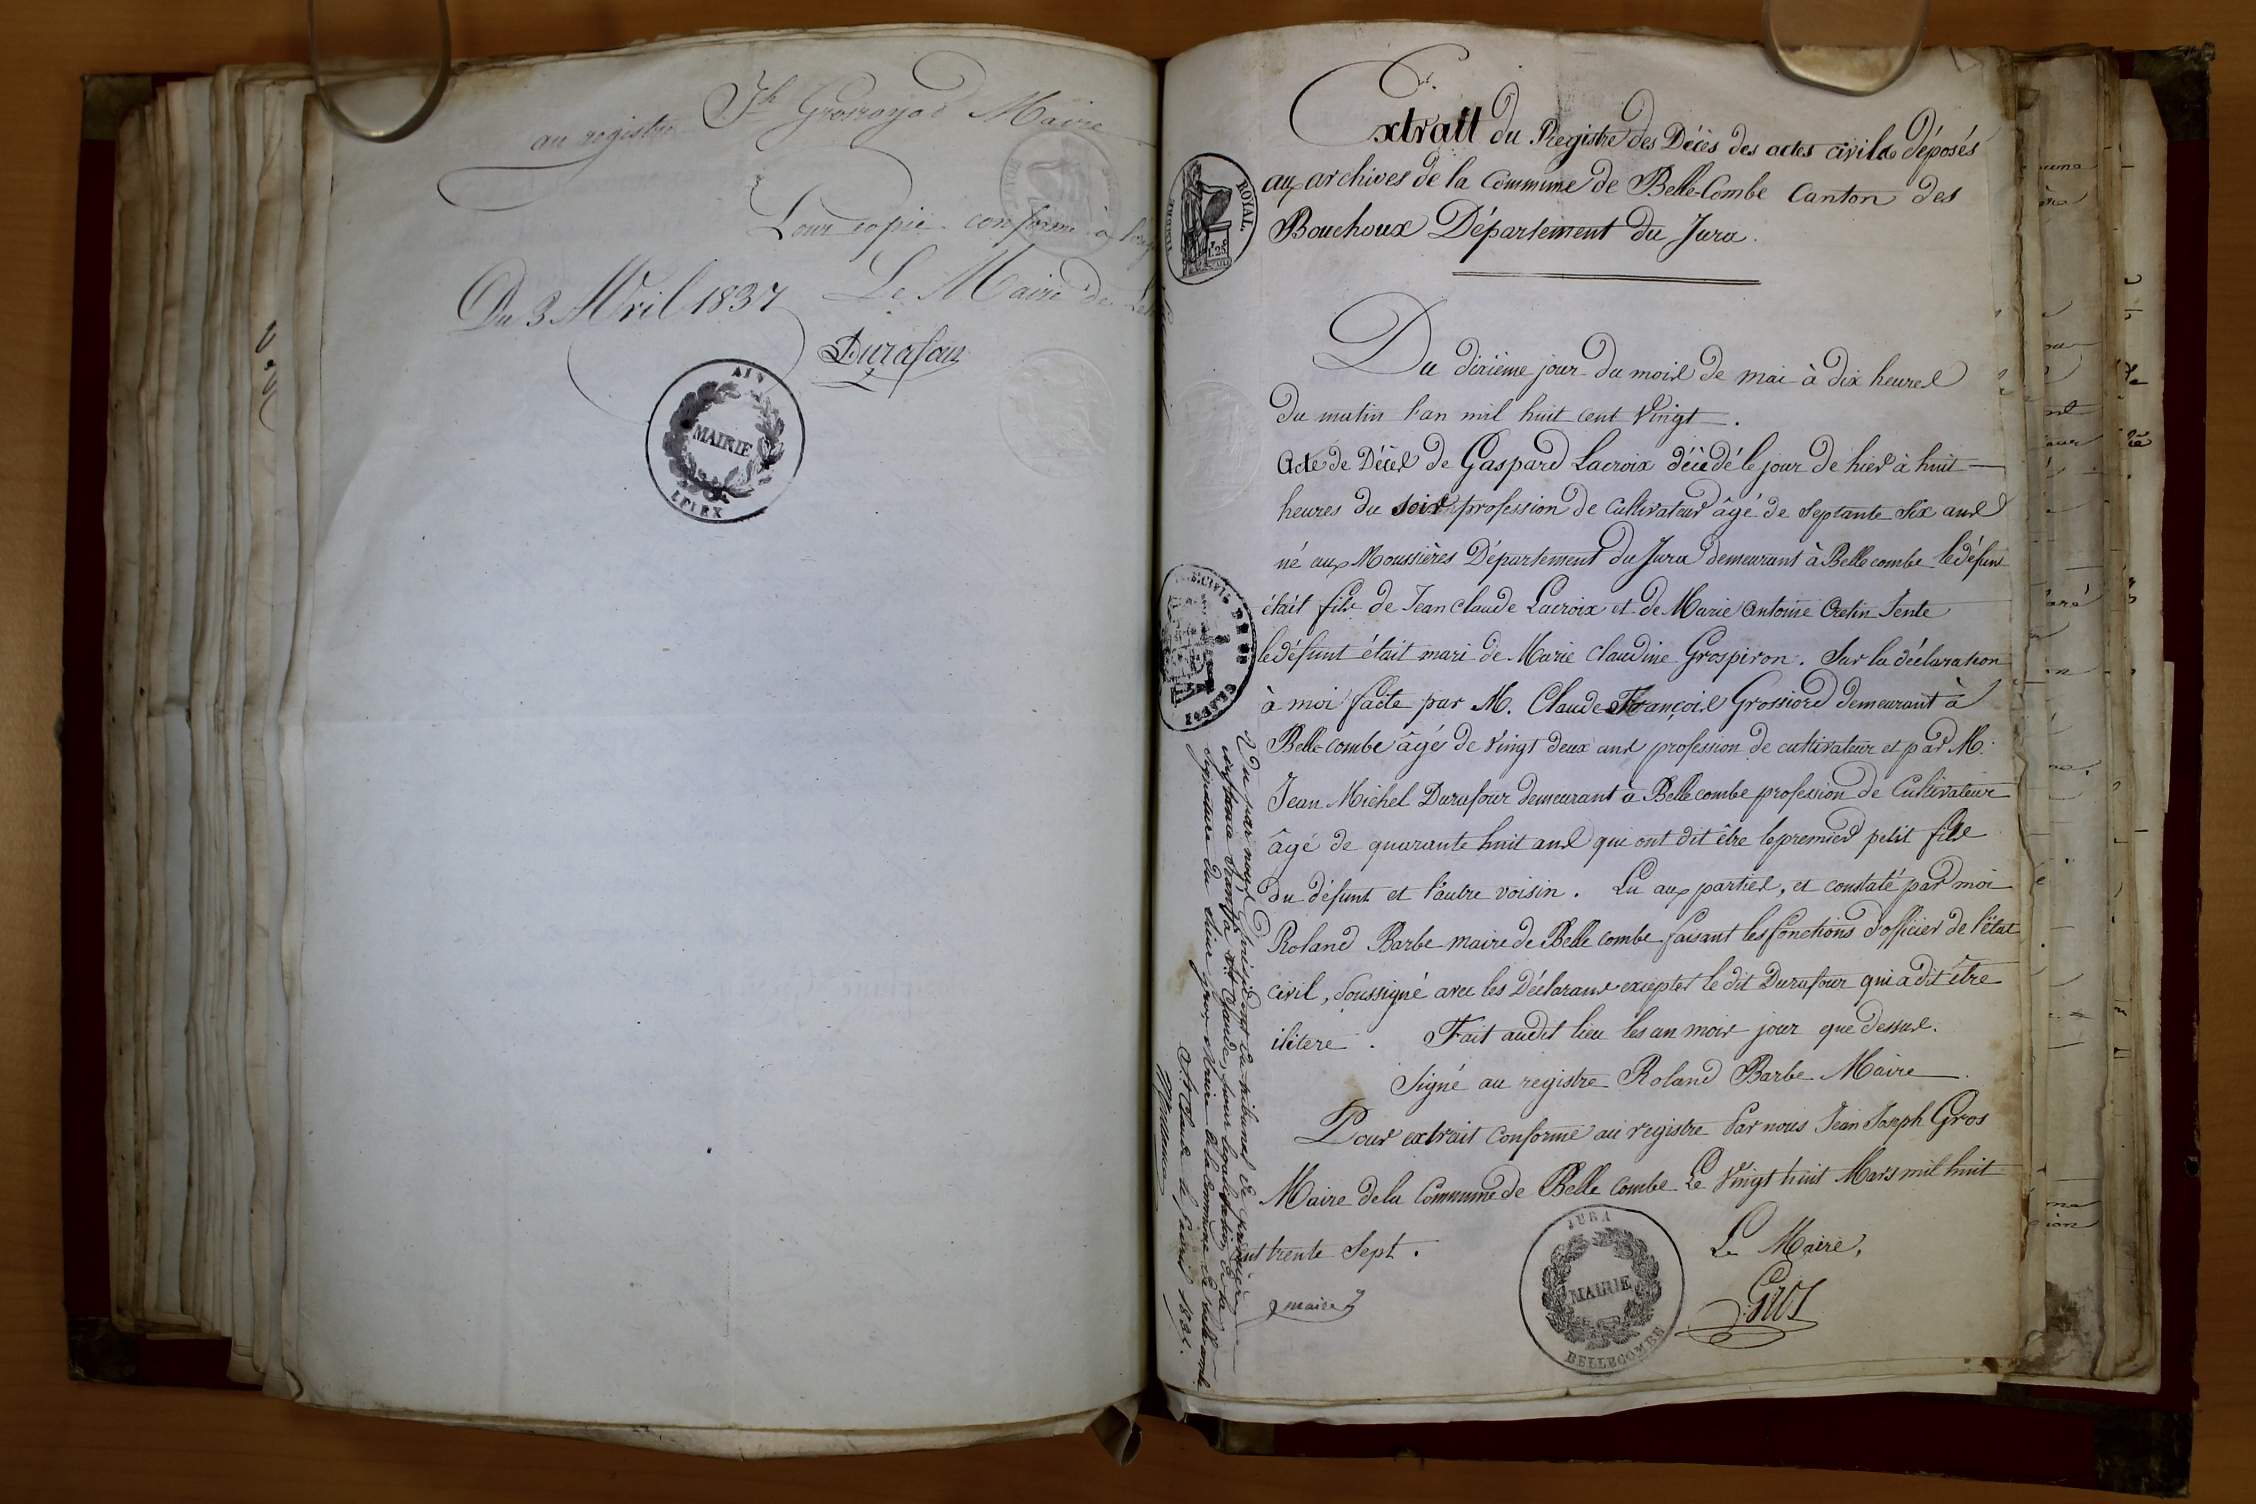 Jh Grosroyat Maire
au registre
Pour copie conforme à
Le Maire de
Du 3 Avril 1837
Durafour
AIN
MAIRIE
LELEX
Extrait du Registre des Décès des actes civils déposés
aux archives de la Commune de Belle-Combe Canton des
Bouchoux Département du Jura.
TIMBRE ROYAL
Du dixième jour du mois de mai à dix heures
du matin l'an mil huit cent Vingt.
Acte de Décès de Gaspard Lacroix décédé le jour de hier à huit
heures du soir profession de Cultivateur âgé de Septante Six ans
né aux Moussières Département du Jura demeurant à Belle combe le défunt
était fils de Jean Claude Lacroix et de Marie Antoine Cretin Tente
le défunt était mari de Marie Claudine Grospiron. Sur la déclaration
à moi faite par M. Claude François Grossiord demeurant à
Belle combe âgé de Vingt deux ans profession de cultivateur et par M.
Jean Michel Durafour demeurant à Belle combe profession de Cultivateur
âgé de quarante huit ans qui ont dit être le premier petit fils
du défunt et l'autre voisin. Lu aux parties, et constaté par moi
Roland Barbe maire de Belle combe faisant les fonctions d'officier de l'état
civil, soussigné avec les Déclarans exceptes le dit Durafour qui a dit être
ilitere. Fait audit lieu les an mois jour que dessus.
Signé au registre Roland Barbe Maire
Pour extrait conforme au registre Par nous Jean Joseph Gros
Maire de la Commune de Belle Combe Le Vingt huit Mars mil huit
cent trente Sept.
Le Maire,
Gros
maire
JURA
MAIRIE
BELLECOMBE
Vu par nous, Président du tribunal de première
instance séant à St Claude, pour légalisation de la
signature du sieur gros, Maire de la Commune de belle combe
St Claude le avril 1837.